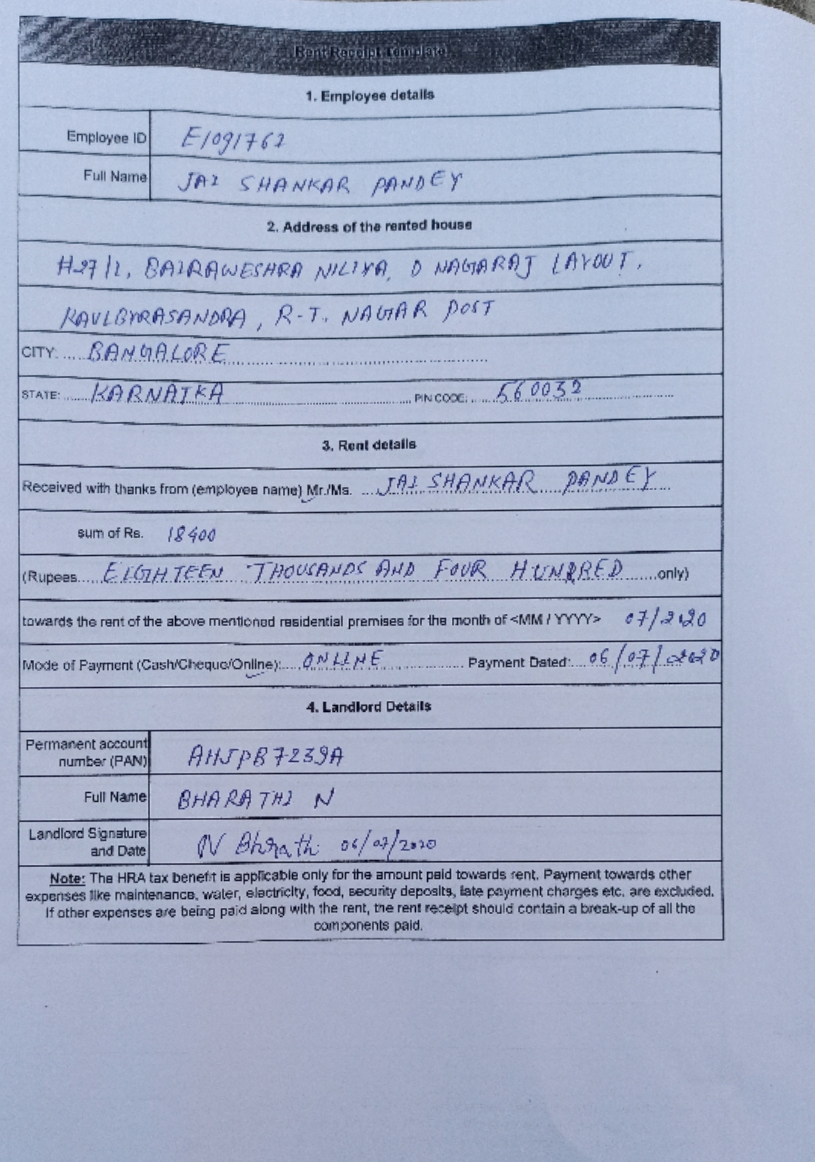 Rent Receipt Template
1. Employee details
Employee ID E1091762
Full Name JAI SHANKAR PANDEY
2. Address of the rented house
H27/1, BAIRAWESHRA NILIYA, D NAGARAJ LAYOUT,
KAVLBYRASANDRA, R-T. NAGAR POST
CITY: BANGALORE
STATE: KARNATKA PIN CODE: 560032
3. Rent details
Received with thanks from (employee name) Mr./Ms. JAI SHANKAR PANDEY
sum of Rs. 18400
(Rupees EIGHTEEN THOUSANDS AND FOUR HUNDRED only)
towards the rent of the above mentioned residential premises for the month of <MM / YYYY> 07/2020
Mode of Payment (Cash/Cheque/Online): ONLINE Payment Dated: 06/07/2020
4. Landlord Details
Permanent account
number (PAN) AHJPB7239A
Full Name BHARATHI N
Landlord Signature
and Date N Bhrath 06/07/2020
Note: The HRA tax benefit is applicable only for the amount paid towards rent. Payment towards other
expenses like maintenance, water, electricity, food, security deposits, late payment charges etc. are excluded.
If other expenses are being paid along with the rent, the rent receipt should contain a break-up of all the
components paid.